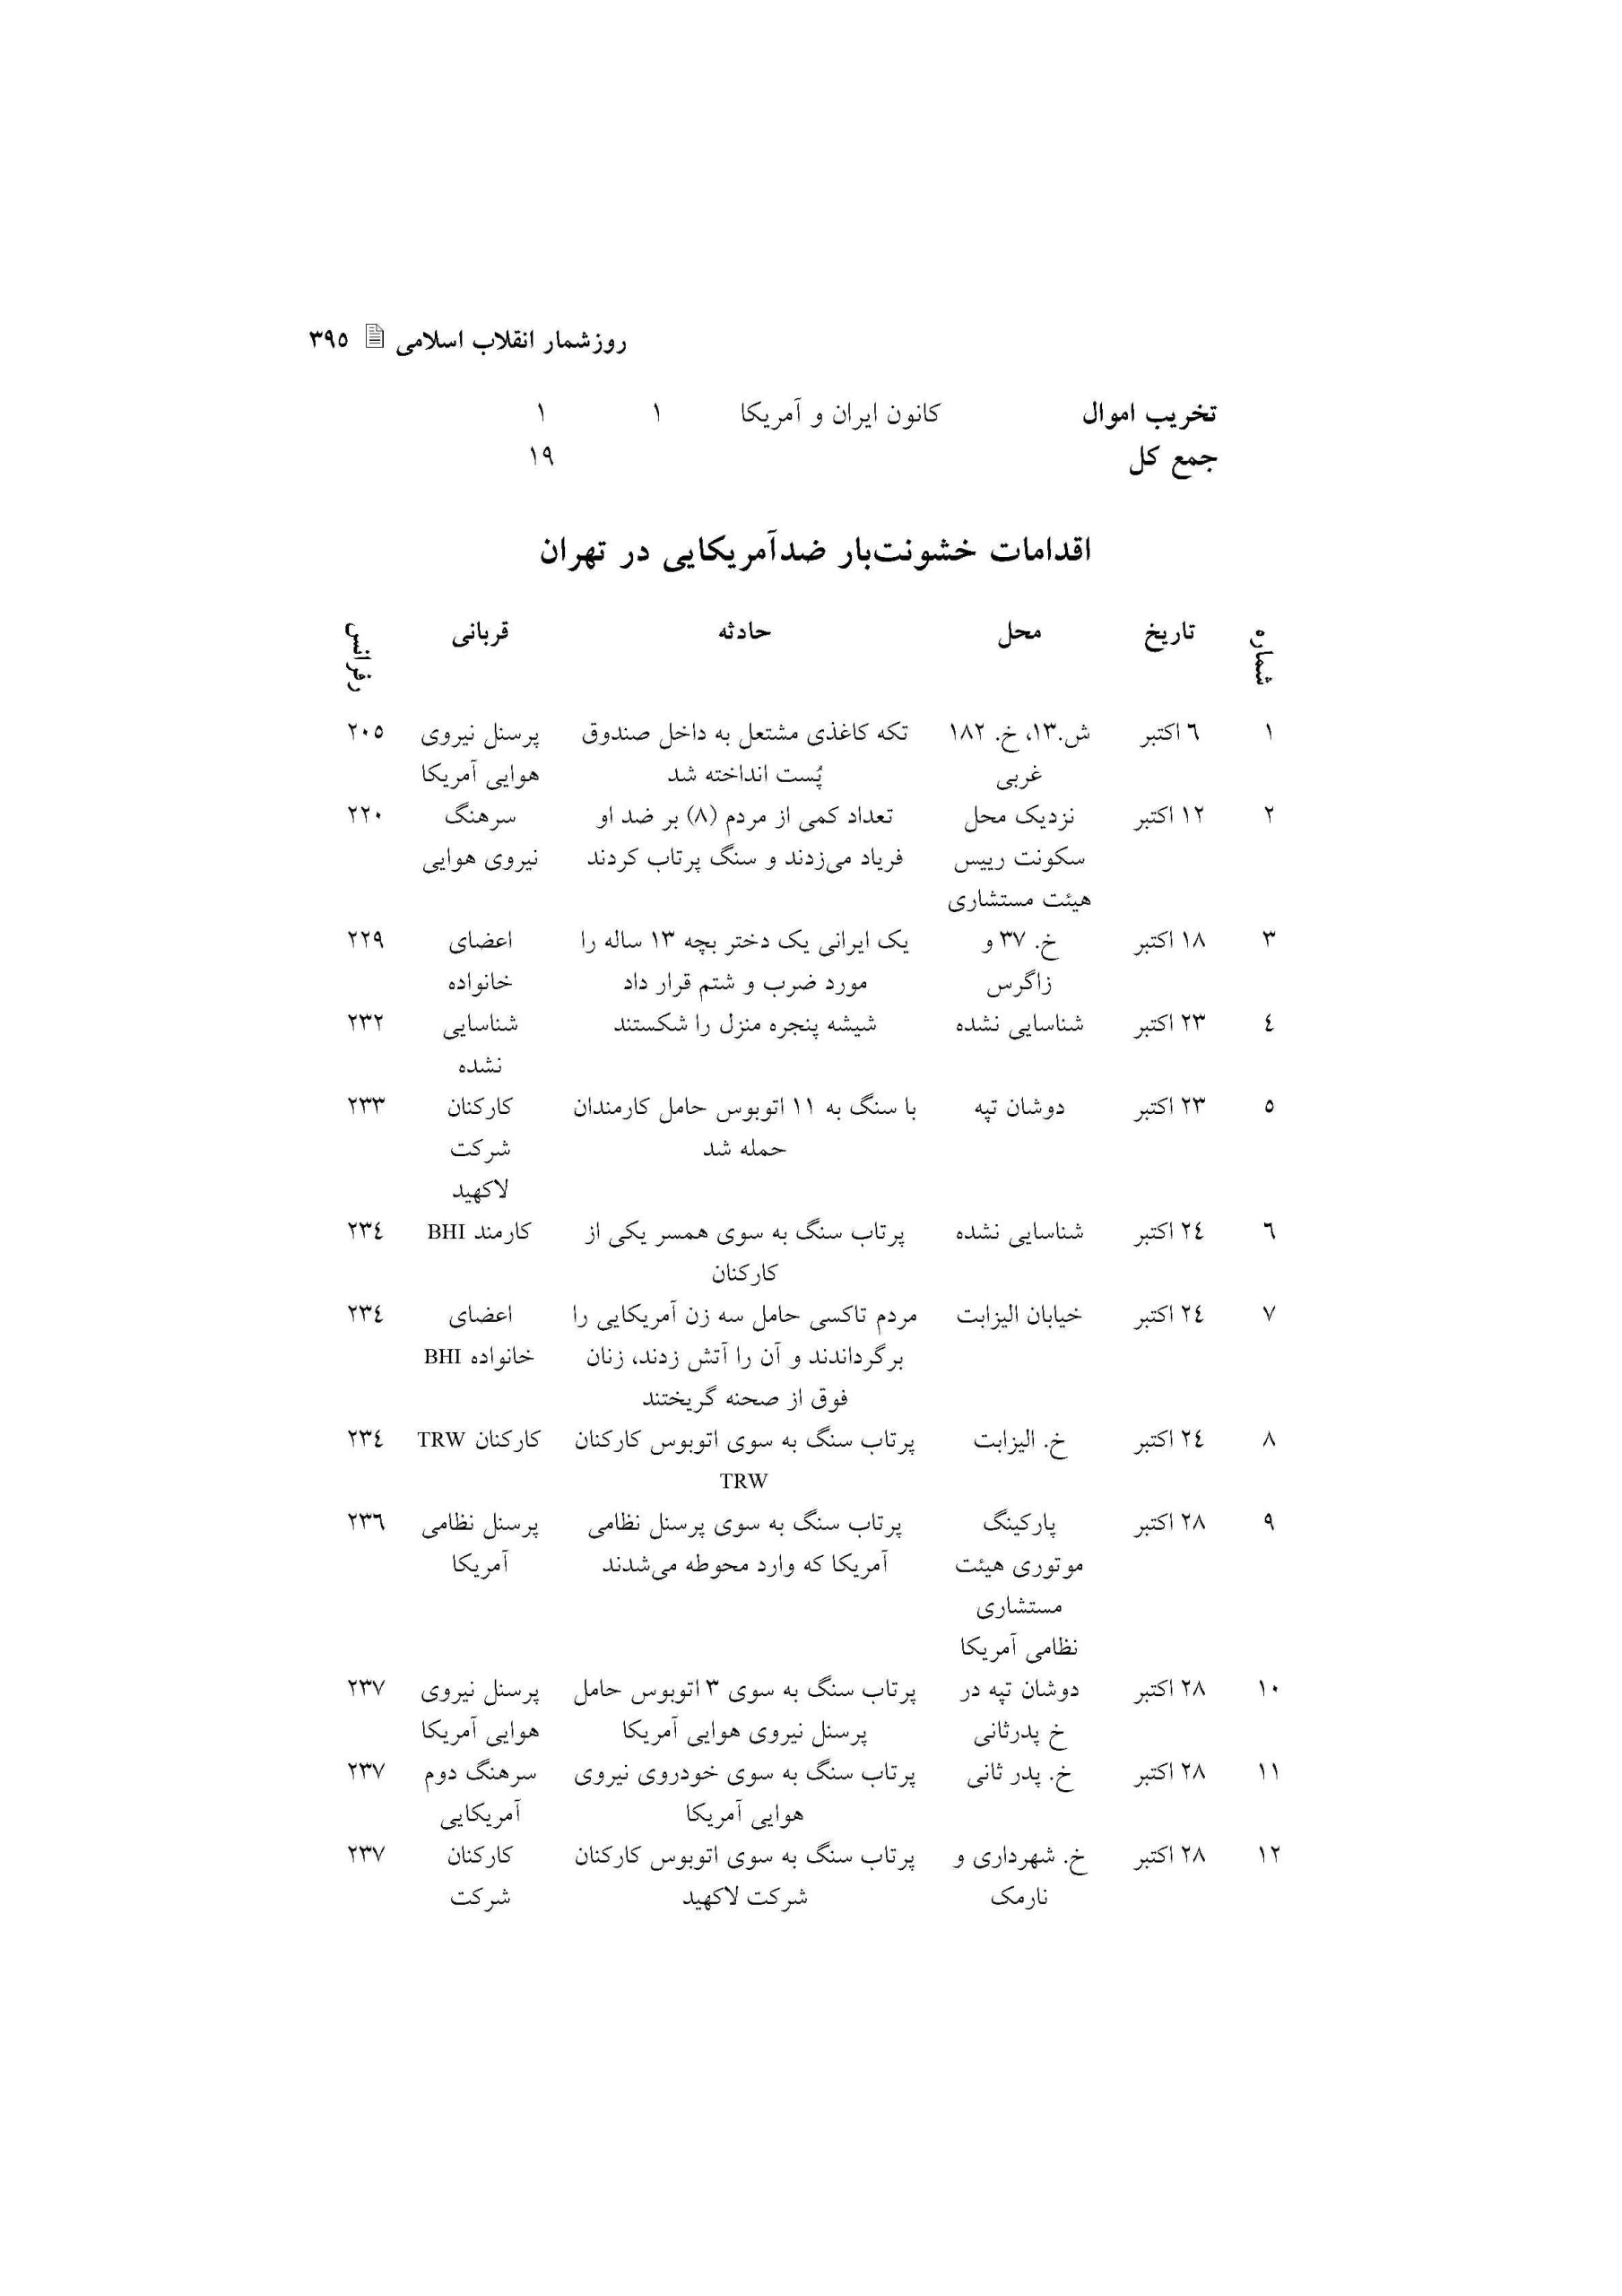 روزشمار انقلاب اسلامی ۳۹۵
تخریب اموال کانون ایران و آمریکا ۱ ۱
جمع کل ۱۹
اقدامات خشونت‌بار ضدآمریکایی در تهران
شماره تاریخ محل حادثه قربانی رفرانس
۱ ۶ اکتبر ش.۱۳، خ. ۱۸۲ تکه کاغذی مشتعل به داخل صندوق پرسنل نیروی ۲۰۵
غربی پُست انداخته شد هوایی آمریکا
۲ ۱۲ اکتبر نزدیک محل تعداد کمی از مردم (۸) بر ضد او سرهنگ ۲۲۰
سکونت رییس فریاد می‌زدند و سنگ پرتاب کردند نیروی هوایی
هیئت مستشاری
۳ ۱۸ اکتبر خ. ۳۷ و یک ایرانی یک دختر بچه ۱۳ ساله را اعضای ۲۲۹
زاگرس مورد ضرب و شتم قرار داد خانواده
۴ ۲۳ اکتبر شناسایی نشده شیشه پنجره منزل را شکستند شناسایی ۲۳۲
نشده
۵ ۲۳ اکتبر دوشان تپه با سنگ به ۱۱ اتوبوس حامل کارمندان کارکنان ۲۳۳
حمله شد شرکت
لاکهید
۶ ۲۴ اکتبر شناسایی نشده پرتاب سنگ به سوی همسر یکی از کارمند BHI ۲۳۴
کارکنان
۷ ۲۴ اکتبر خیابان الیزابت مردم تاکسی حامل سه زن آمریکایی را اعضای ۲۳۴
برگرداندند و آن را آتش زدند، زنان خانواده BHI
فوق از صحنه گریختند
۸ ۲۴ اکتبر خ. الیزابت پرتاب سنگ به سوی اتوبوس کارکنان کارکنان TRW ۲۳۴
TRW
۹ ۲۸ اکتبر پارکینگ پرتاب سنگ به سوی پرسنل نظامی پرسنل نظامی ۲۳۶
موتوری هیئت آمریکا که وارد محوطه می‌شدند آمریکا
مستشاری
نظامی آمریکا
۱۰ ۲۸ اکتبر دوشان تپه در پرتاب سنگ به سوی ۳ اتوبوس حامل پرسنل نیروی ۲۳۷
خ پدرثانی پرسنل نیروی هوایی آمریکا هوایی آمریکا
۱۱ ۲۸ اکتبر خ. پدر ثانی پرتاب سنگ به سوی خودروی نیروی سرهنگ دوم ۲۳۷
هوایی آمریکا آمریکایی
۱۲ ۲۸ اکتبر خ. شهرداری و پرتاب سنگ به سوی اتوبوس کارکنان کارکنان ۲۳۷
نارمک شرکت لاکهید شرکت